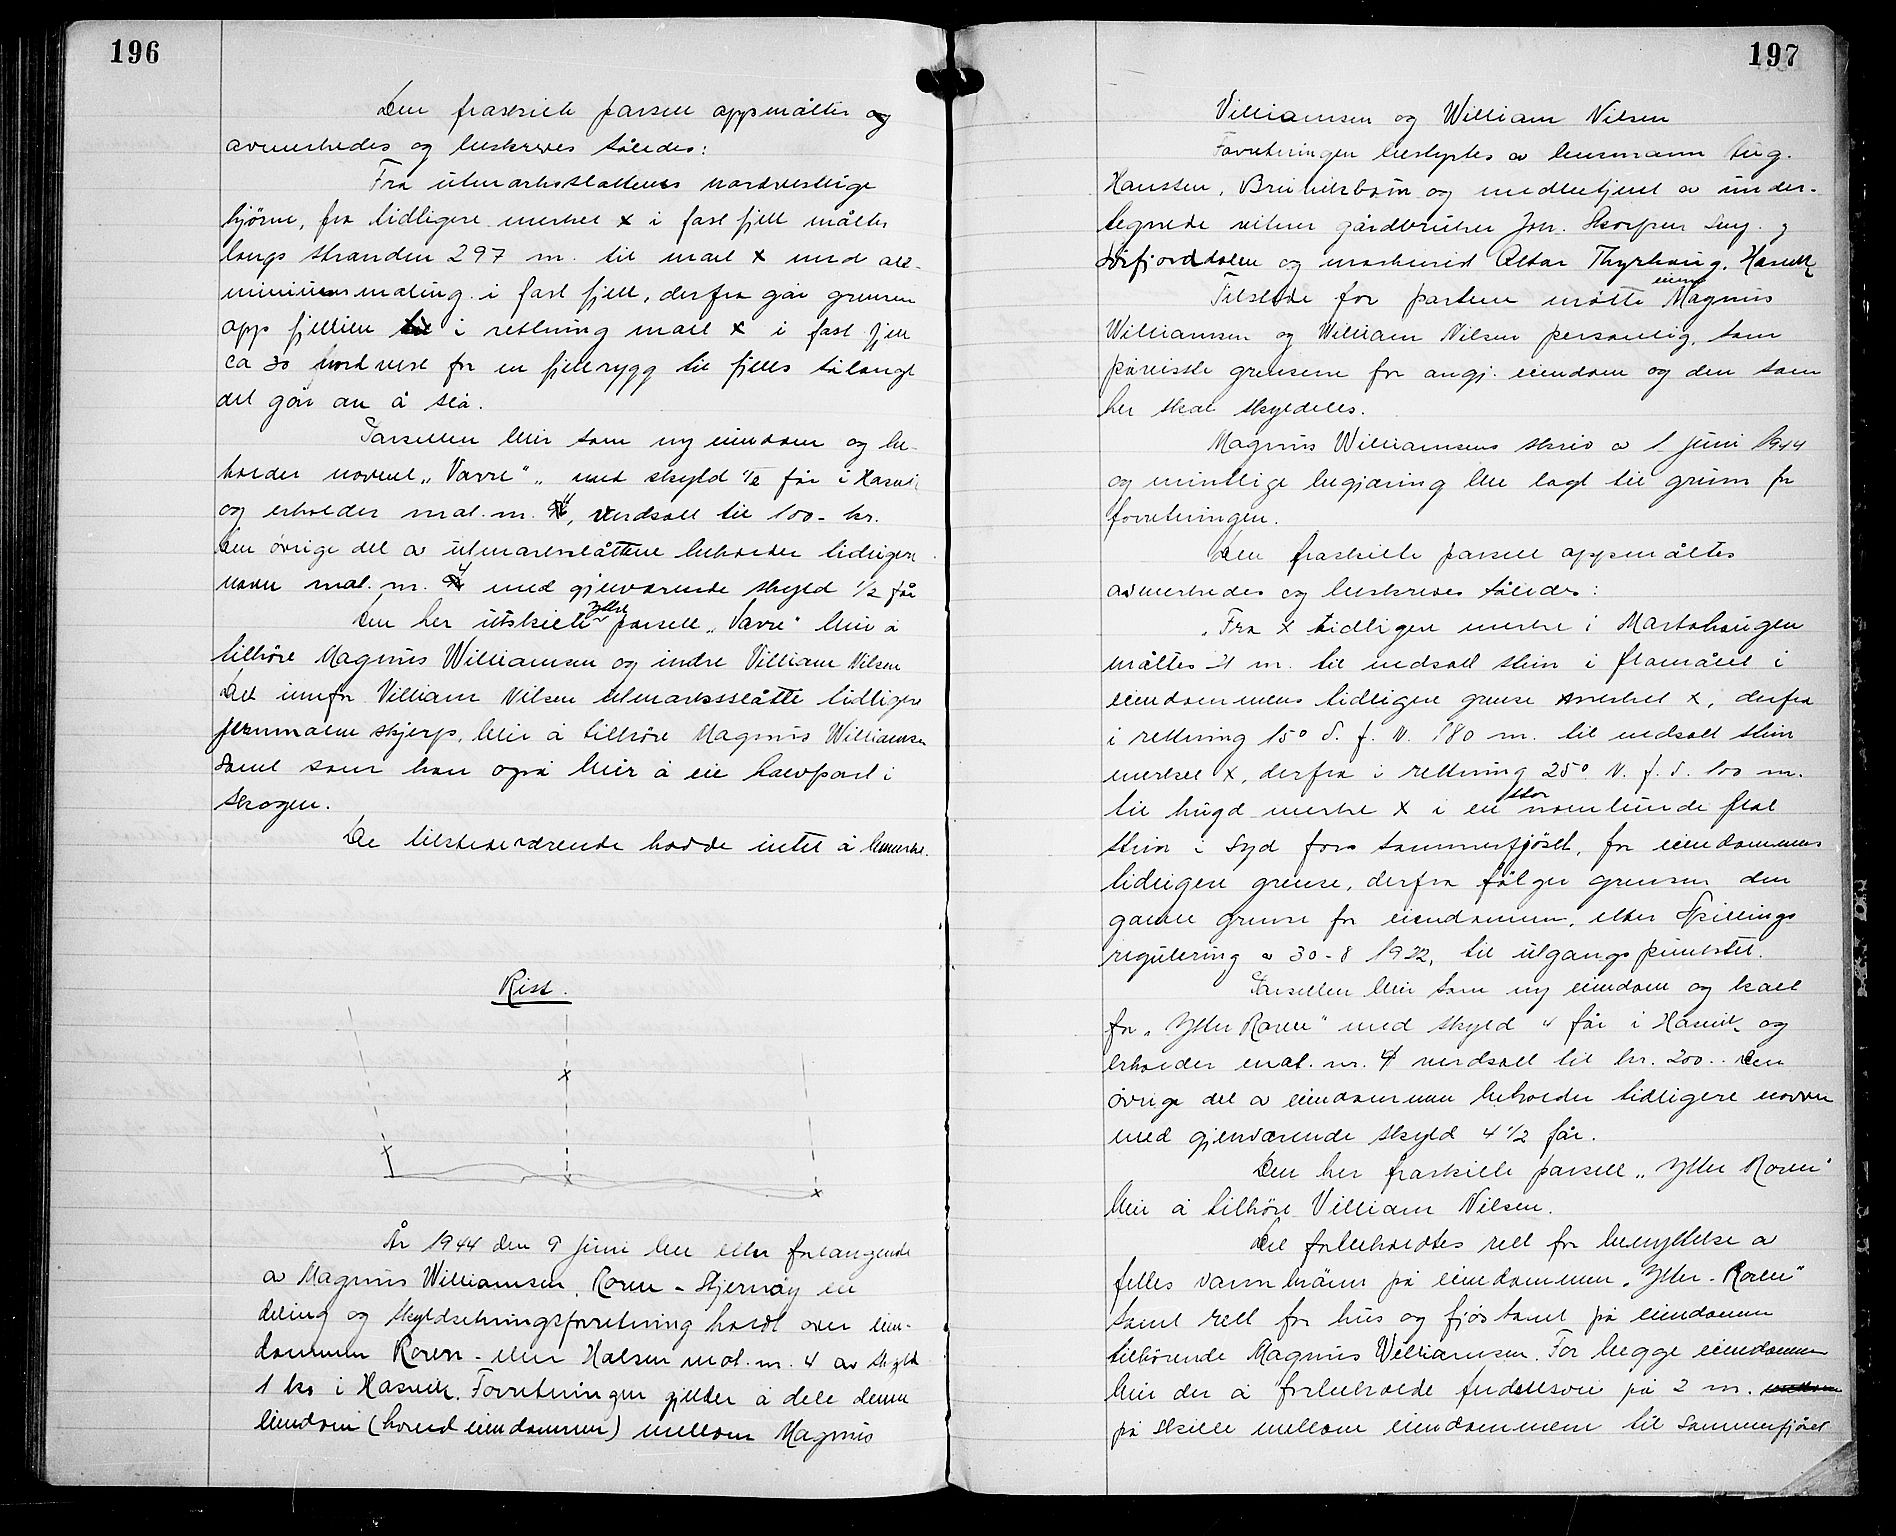 196
Den fraskilte parsell oppmåltes og
avmerkedes og beskreves således:
Fra utmarksslåttens nordvestlige
hjørne, fra tidligere merket x i fast fjell måltes
langs stranden 297 m. til mærl x med alu-
miniumsmaling i fast fjell, derfra går grensen
opp fjellien i retning mærl x i fast fjell
ca 30 nordvest for en fjellrygg til fjells sålangt
det går an å slå.
Parsellen blir som ny eiendom og be-
holder navnet „Vavre" med skyld 1/2 får i Hasvik
og erholder mat. nr. verdsatt til 100- kr.
Den øvrige del av utmarksslåttene beholder tidligere
navn mat. nr. 4 med gjenværende skyld 1/2 får
Den her utskilte ytre parsell „Vavre" blir å
tilhøre Magnus Williamsen og indre Villiam Nilsen
Det innfor Villiam Nilsen utmarksslåtte tidligere
skjerp, blir å tilhøre Magnus Williamsen
samt som han også blir å eie halvpart i
skogen.
De tilstedeværende hadde intet å bemerke.
Riss.
År 1944 den 9 juni ble etter forlangende
av Magnus Williamsen, Roren - Stjernøy en
deling og skyldsetningsforretning holdt over eien-
dommen Roren - eller Halsen mat. nr. 4 av skyld
1 ku i Hasvik. Forretningen gjelder å dele denne
eiendom (hoved eiendommen) mellom Magnus
197
Villiamsen og William Nilsen
Forretningen bestyrtes av lensmann Aug.
Hansten, Breivikbotn og medbetjent av under-
tegnede vitner gårdbruker Joh. Skorpen Seng.
Sørfjorddalen og maskinist Oskar Thyrhaug, Hasvik
Tilstede for partene møtte eieren Magnus
Williamsen og William Nilsen personlig, som
påvisste grensene for angj. eiendom og den som
her skal skyldeles.
Magnus Williamsens skriv av 1 juni 1944
og muntlige begjæring ble lagt til grunn for
forretningen.
Den fraskilte parsell oppmåltes
avmerkedes og beskreves således:
Fra x tidligere merke i Martahaugen
måltes 21 m. til nedsatt sten i flomålet i
eiendommens tidligere grense merket x, derfra
i retning 15° S. f. V. 180 m. til nedsatt sten
merket x, derfra i retning 25° V. f. S. 100 m.
til hugd merke x i en stor flat
sten i Syd for sommerfjøset, for eiendommens
tidligere grense, derfra følger grensen den
gamle grense for eiendommen, etter Skillings
regulering av 30-8 1922, til utgangspunktet.
Parsellen blir som ny eiendom og kalt
for „Ytter Roren" med skyld 4 får i Hasvik og
erholder mat. nr. 4 verdsatt til kr. 200.. Den
øvrige del av eiendommen beholder tidligere navn
med gjenværende skyld 4 1/2 får.
Den her fraskilte parsell „Ytter Roren"
blir å tilhøre Villiam Nilsen.
Det forbeholdtes rett for benyttelse av
felles vannbrønn på eiendommen „Ytter-Roren"
samt rett for hus og fjøstomt på eiendommen
tilhørende Magnus Velliamsen. For begge eiendommer
blir der å forbeholde ferdselsvei på 2 m.
på skille mellom eiendommene til sommerfjøset